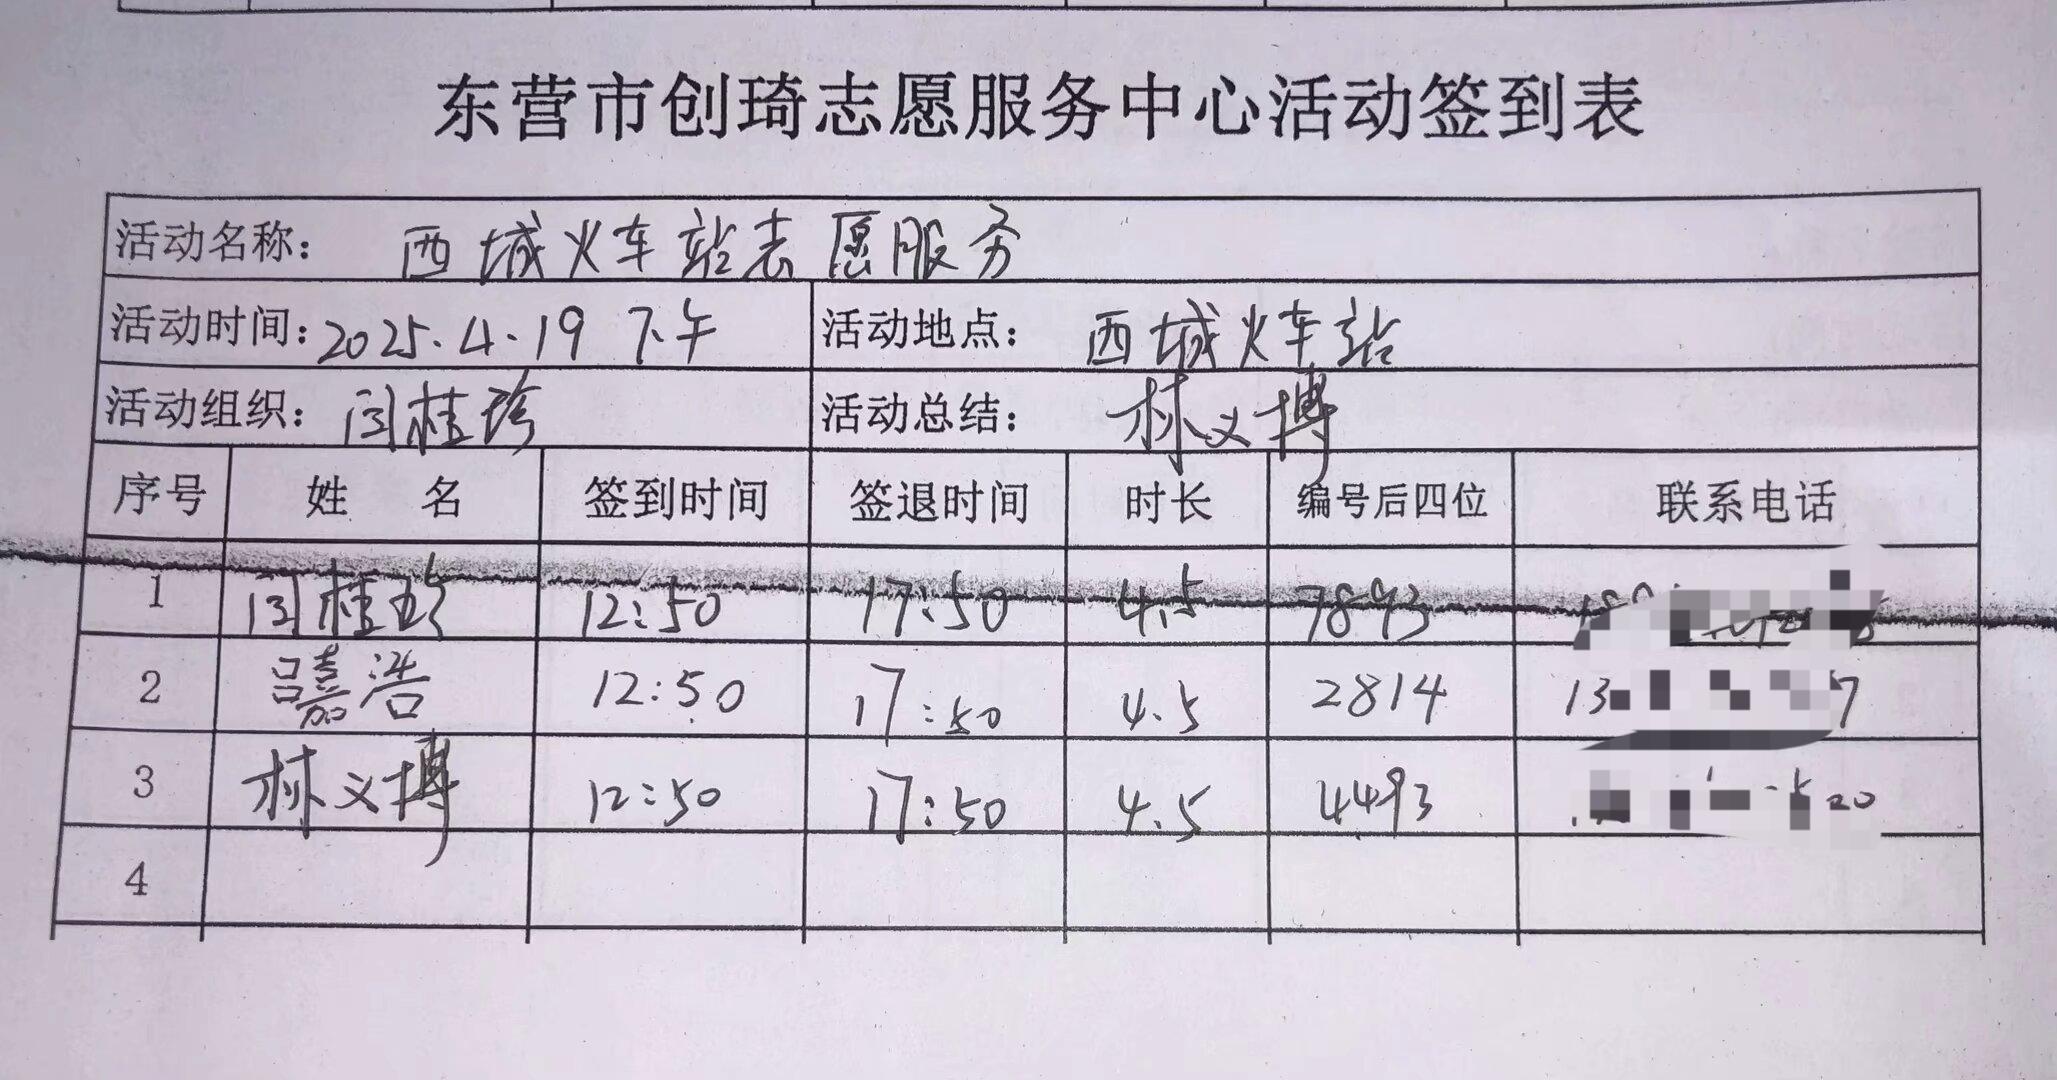 东营市创琦志愿服务中心活动签到表
活动名称: 西城火车站志愿服务
活动时间: 2025.4.19 下午 活动地点: 西城火车站
活动组织: 闫桂珍 活动总结: 林义博
序号 姓 名 签到时间 签退时间 时长 编号后四位 联系电话
1 闫桂珍 12:50 17:50 4.5 7893
2 吕嘉浩 12:50 17:50 4.5 2814 13 7
3 林义博 12:50 17:50 4.5 4493 20
4